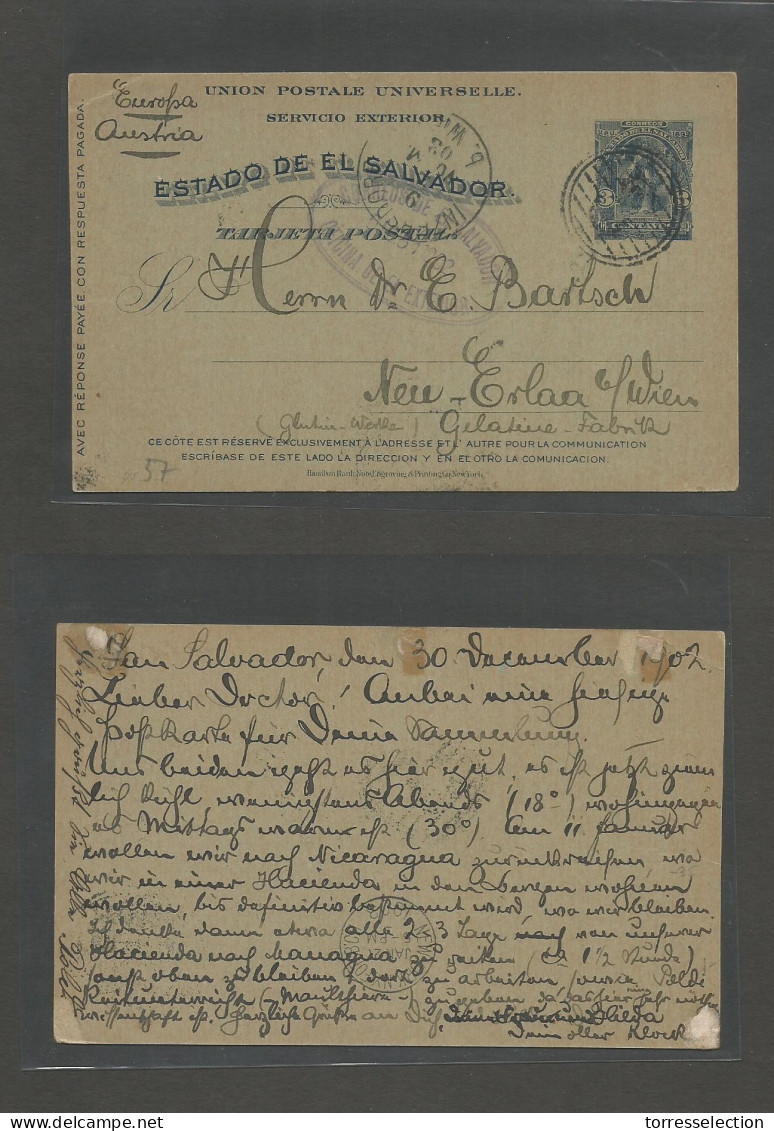 Europa
Austria
UNION POSTALE UNIVERSELLE.
SERVICIO EXTERIOR.
ESTADO DE EL SALVADOR.
TARJETA POSTAL
CORREOS
3
CENTAVOS
AVEC RÉPONSE PAYÉE CON RESPUESTA PAGADA.
Sr Herrn Dr. E. Bartsch
Neu-Erlaa b/Wien
(Glutin-Werke) Gelatine-Fabrik
CE CÔTE EST RÉSERVÉ EXCLUSIVEMENT À L'ADRESSE ET L' AUTRE POUR LA COMMUNICATION
ESCRÍBASE DE ESTE LADO LA DIRECCION Y EN EL OTRO LA COMUNICACION.
Hamilton Bank Note Engraving & Printing Co. New York.
57
San Salvador, den 30 Dezember 1902.
Lieber Doctor! Anbei eine hiesige
Postkarte für Deine Sammlung.
Uns beiden geht es hier gut, es ist jetzt ziem
lich kühl, wenigstens Abends (18°) wohingegen
es Mittags warm ist (30°) Am 11 Januar
wollen wir nach Nicaragua zurückreisen, wo
wir in einer Hacienda in den Bergen wohnen
wollen, bis definitiv bestimmt wird, wo wir bleiben.
Ich denke dann etwa alle 2-3 Tage von unserer
Hacienda nach Managua zu reiten (ca 1 1/2 Stunde)
sonst oben zu bleiben & dort zu arbeiten, sowie
Reitunterricht (-Maulthiere-) zu geben, da das hier sehr
ist. Herzliche Grüsse an Dich,
Dein oller Klock
Hilda
torresselection